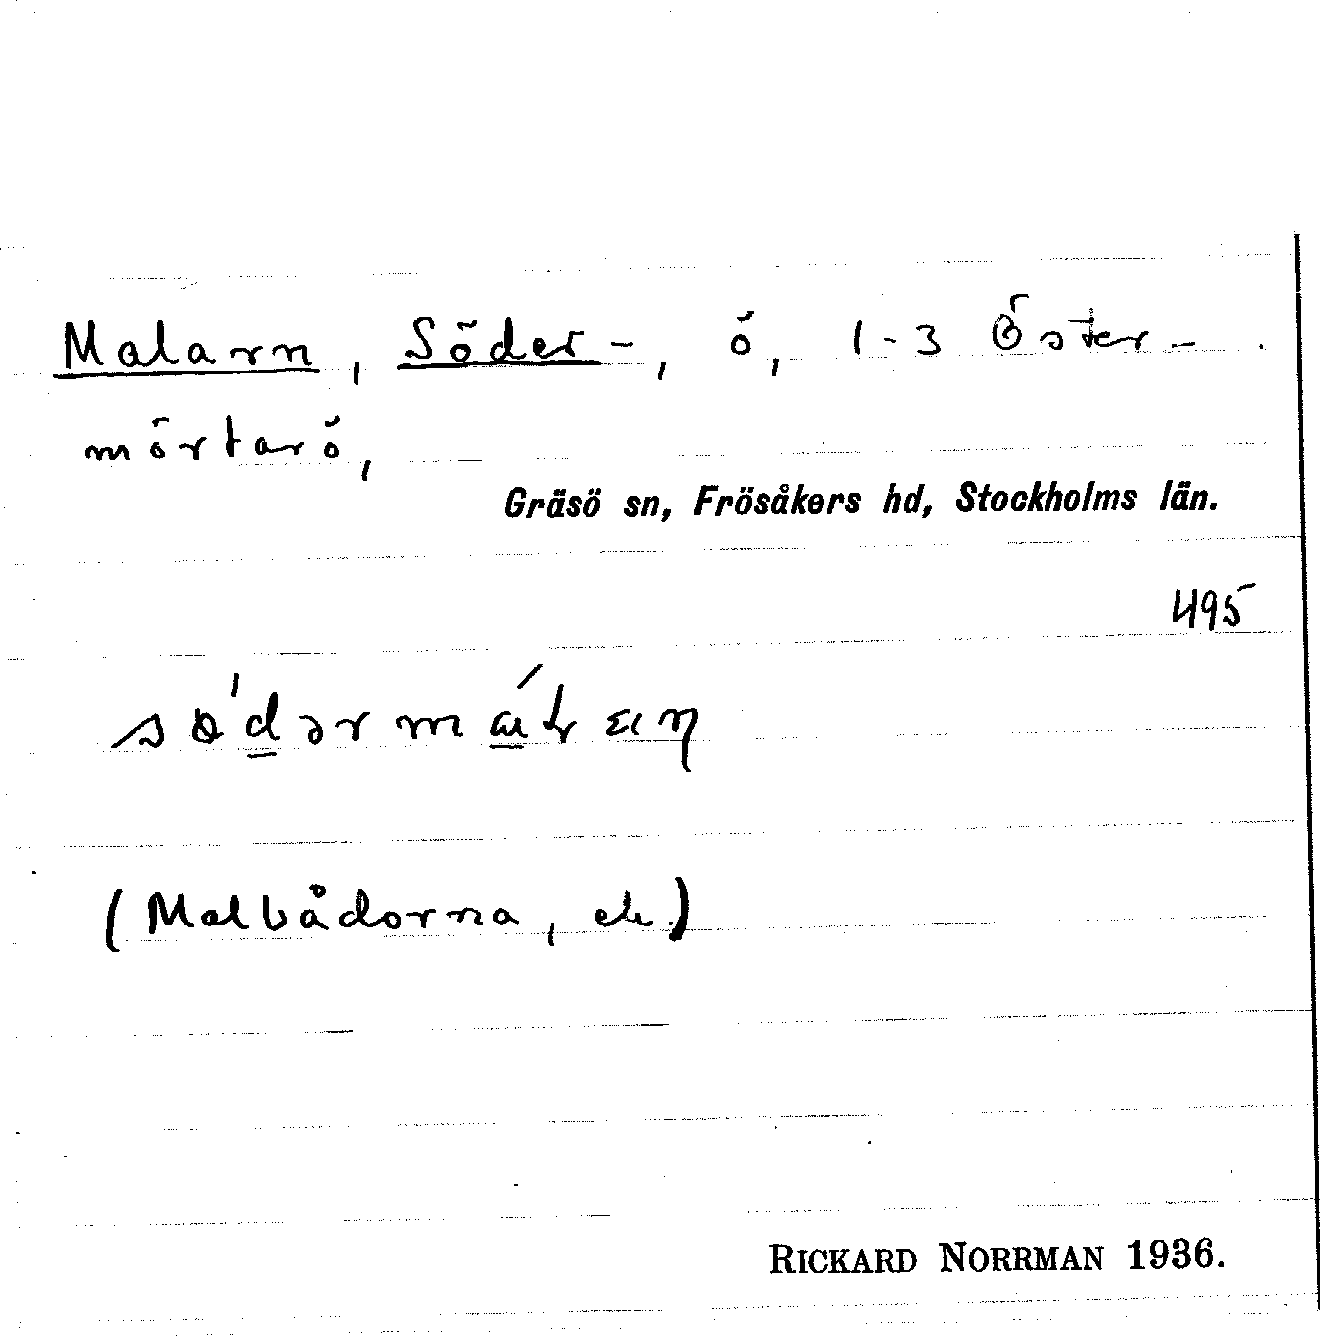 Malarn, Söder-, ö, 1-3 Öster-
mörtarö,
Gräsö sn, Frösåkers hd, Stockholms län.
495
(Malbådorna, etc.)
RICKARD NORRMAN 1936.